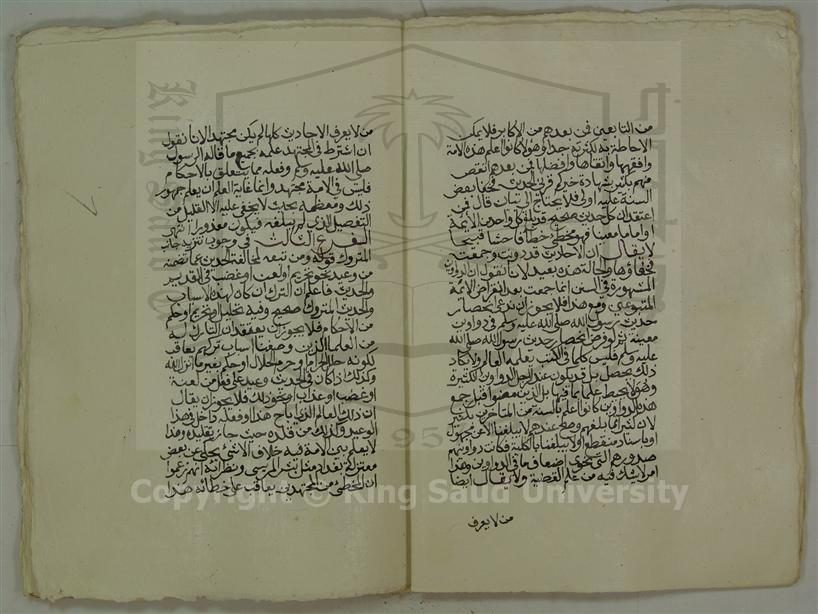 من التابعين في بعدهم من الاكابر فلا يمكن
الاحاطة به لكثرته جدا وهو لا كانوا اعلم هذه الامة
وافقهها واتقاها وافضلها في بعدهم انقص
منهم بكثير بشهادة خيركم قرني الحديث فخفا بعض
السنة عليه اولى فلا يحتاج الى بيان قال فمن
اعتقد ان كل حديث صحيح قد بلغ كل واحد من الائمة
او اماما معينا فهو مخطئ خطأ فاحشا قبيحا
لا يقال ان الاحاديث قد دونت وجمعت
فخفاؤها والحالة هذه بعيد لانا نقول ان الدواوين
المشهورة في السنن انما جمعت بعد انقراض الائمة
المتبوعين ومع هذا فلا يجوز ان ندعي انحصار
حديث رسول الله صلى الله عليه وسلم في دواوين
معينة ثم لو فرض انحصار حديث رسول الله صلى الله
عليه وسلم فليس كل ما في الكتب يعلمه العالم ولا يكاد
ذلك يحصل بل قد يكون عند الرجل الدواوين الكثيرة
وهو لا يحيط علما بما فيها بل الذين مضوا قبل جمع
هذه الدواوين كانوا اعلم بالسنة من المتاخرين بكثير
لان كثيرا مما بلغهم وصح عندهم لا يبلغنا الا عن مجهول
او باسناد منقطع او لا يبلغنا بالكلية فكانت دواوينهم
صدورهم التي تحوي اضعاف ما في الدواوين وهذا
امر لا يشك فيه من علم القضية ولا يقال ايضا
من لا يعرف
من لا يعرف الاحاديث كلها لم يكن مجتهدا لانا نقول
ان اشترط في المجتهد علمه بجميع ما قاله الرسول
صلى الله عليه وسلم وفعله مما يتعلق بالاحكام
فليس في الامة مجتهد وانما غاية العالم ان يعلم جمهور
ذلك ومعظمه بحيث لا يخفى عليه الا القليل من
التفصيل الذي لم يبلغه فيكون معذورا انتهى
الفرع الثالث في وجوب تنزيه جانب
المتروك قوله ومن تبعه لمخالفته الحديث عما تضمنه
من وعيد بنحو تحريم او لعن او غضب في القدير
والحديث فاعلم ان الترك ان كان لهذه الاسباب
والحديث المتروك صحيح وفيه تحليل وتحريم او حكم
من الاحكام فلا يجوز ان يعتقد ان التارك له
من العلماء الذين وصفنا اسباب تركهم يعاقب
لكونه حلل الحرام او حرم الحلال او حكم بغير ما انزل الله
وكذلك اذا كان في الحديث وعيد على فعل من لعنة
او غضب او عذاب او نحو ذلك فلا يجوز ان يقال
ان ذلك العالم الذي اباح هذا او فعله داخل في هذا
الوعيد وكذلك من قلده حيث جاز تقليده وهذا
لا يعلم بين الامة فيه خلاف الا شئ يحكى عن بعض
معتزلة بغداد مثل بشر المريسي ونظرائه انهم زعموا
ان المخطئ من المجتهدين يعاقب على خطائه هذا
Copyright © King Saud University
1957